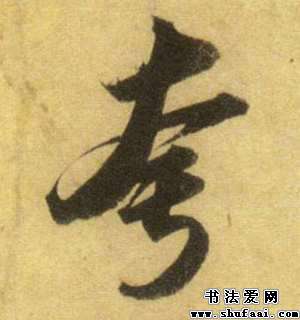 夸
书法爱网
www.shufaai.com